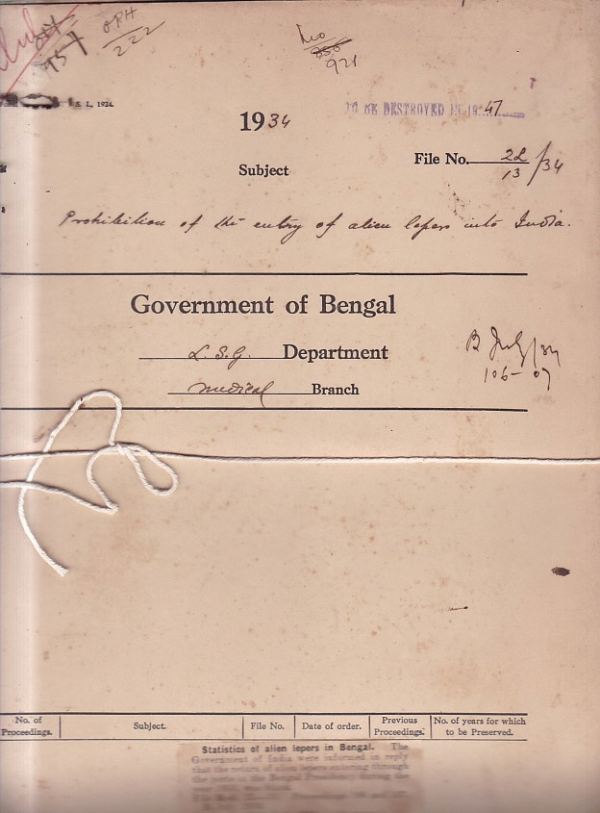 957
OPH
222
921
S. L., 1924.
TO BE DESTROYED IN 1947
1934
File No. 2L/13/34
Subject
Prohibition of the entry of alien lepers into India.
Government of Bengal
L. S. G. Department
Medical Branch
B July/34
106-07
No. of Proceedings.
Subject.
File No.
Date of order.
Previous Proceedings.
No. of years for which to be Preserved.
Statistics of alien lepers in Bengal. The
Government of India were informed in reply
that the return of alien lepers entering through
the ports in the Bengal Presidency during the